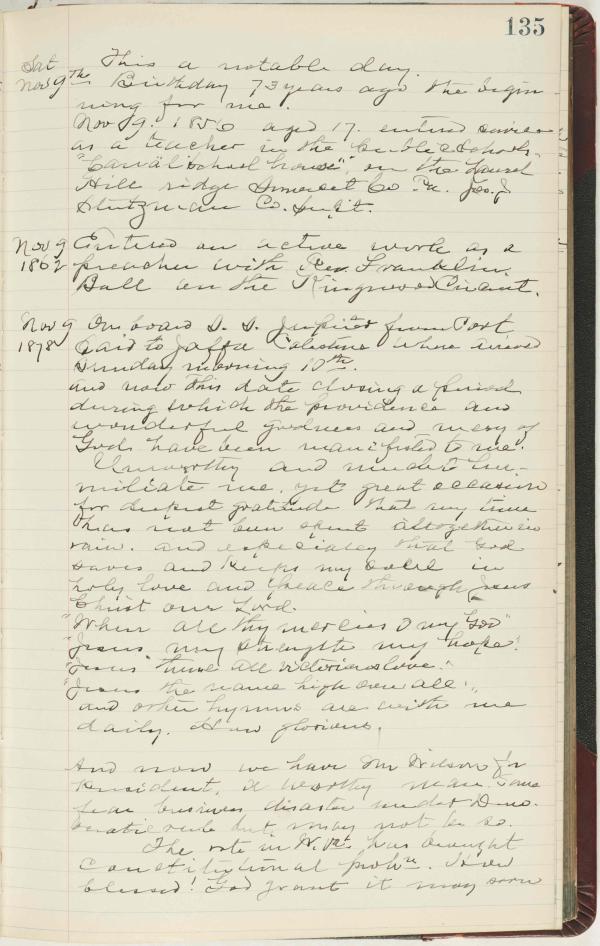 135
Sat This a notable day.
Nov 9th Birthday 73 years ago the begin
ning for me.
Nov 9. 1856 aged 17. entered service
as a teacher in the public schools,
school house", on the Laurel
Hill ridge Somerset Co Pa. Jos. J.
Stutzman Co. Supt.
Nov 9 Entered on active work as a
1862 preacher with Rev. Franklin
Ball on the Kingwood Circuit.
Nov 9 On board S. S. Jupiter from Port
1878 Said to Jaffa Palestine where arrived
Sunday morning 10th.
and now this date closing a period
during which the providence and
wonderful goodness and mercy of
God, have been manifested to me.
Unworthy and hu-
miliate me, yet great occasion
for deepest gratitude that my time
has not been spent altogether in
vain. and especially that God
saves and keeps my soul in
holy love and peace through Jesus
Christ our Lord.
"When all thy mercies O my God"
"Jesus my strength my hope"
"Jesus thine all victorious love."
"Jesus the name high over all",
and other hymns are with me
daily. How glorious.
And now we have Mr Wilson for
President, a worthy man. Some
fear business disaster under Demo-
cratic rule but may not be so.
The vote in W. Va. has brought
Constitutional prohn. How
blessed! God grant it may soon